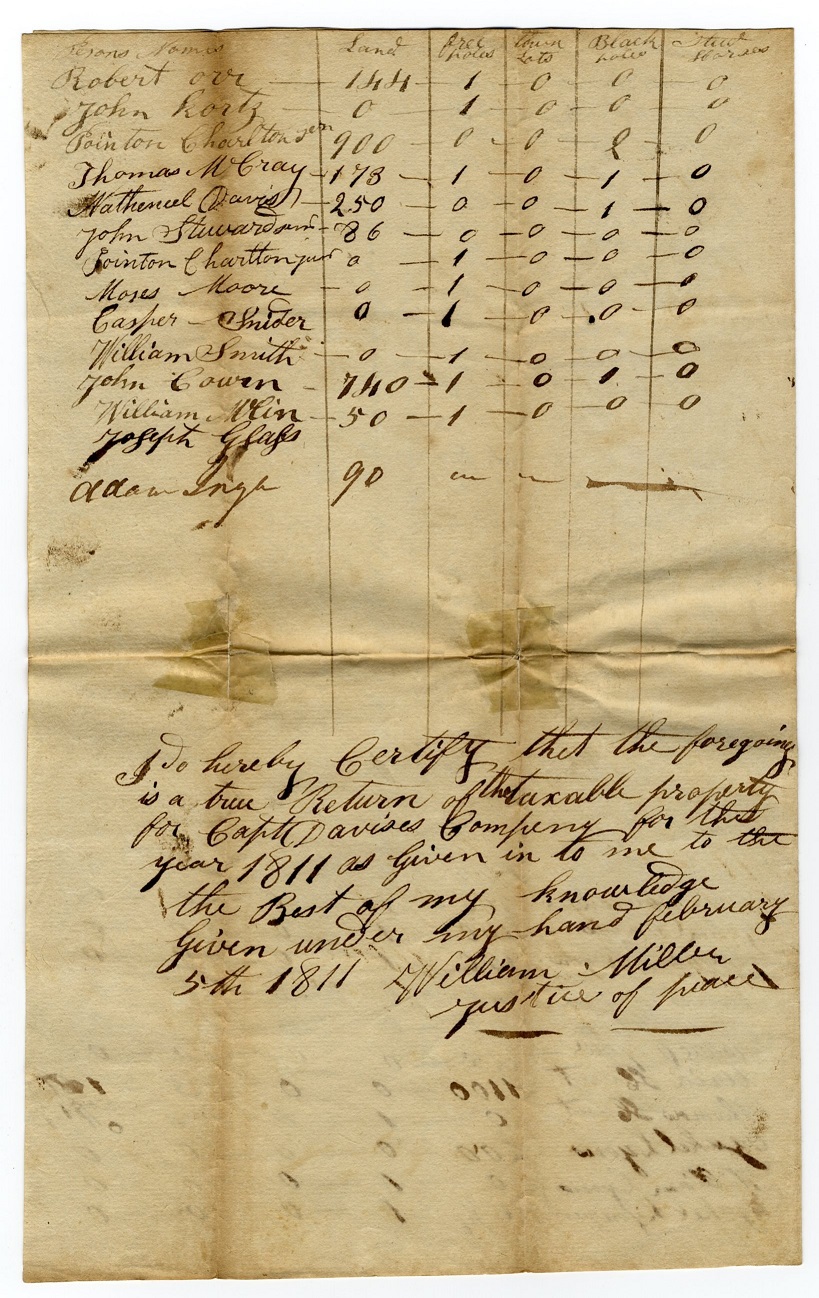 Persons Names Land free poles town Lots Black poles Stud Horses
Robert orr — 144 — 1 — 0 — 0 — 0
John Kortz — 0 — 1 — 0 — 0 — 0
Pointon Charlton senr 900 0 0 2 0
Thomas McCray — 173 — 1 — 0 — 1 — 0
Natheneel Davis — 250 — 0 — 0 — 1 — 0
John Steward senr — 86 — 0 — 0 — 0 — 0
Pointon Charlton junr 0 — 1 — 0 — 0 — 0
Moses Moore — 0 — 1 — 0 — 0 — 0
Casper Snider 0 — 1 — 0 — 0 — 0
William Smith — 0 — 1 — 0 — 0 — 0
John Cowen — 740 — 1 0 — 1 — 0
William McLin — 50 — 1 — 0 — 0 — 0
Joseph Glass
Adam 90
I do hereby Certify thet the foregoing
is a true Return of the taxable property
for Capt Davises Compeny for the
year 1811 as Given in to me to the
the Best of my knowledge
Given under my hand february
5th 1811 William Miller
Justice of peace